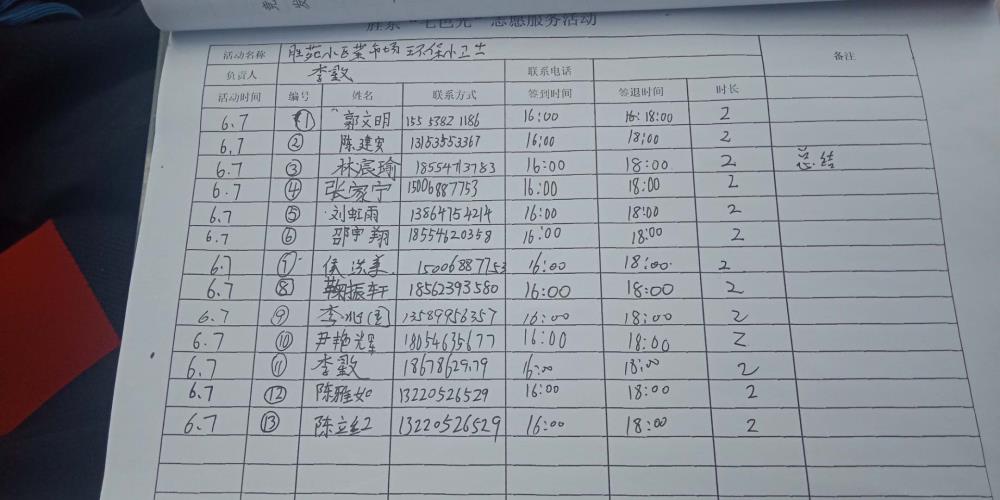 胜东“七色光”志愿服务活动
活动名称 胜苑小区菜市场环保小卫士 备注
负责人 李毅 联系电话
活动时间 编号 姓名 联系方式 签到时间 签退时间 时长
6.7 ① 郭文明 155 5382 1186 16:00 16:18:00 2
6.7 ② 陈建安 13153553367 16:00 18:00 2
6.7 ③ 林宸瑜 18554713783 16:00 18:00 2 总结
6.7 ④ 张家宁 15006887753 16:00 18:00 2
6.7 ⑤ 刘虹雨 13864754214 16:00 18:00 2
6.7 ⑥ 邵宇翔 18554620358 16:00 18:00 2
6.7 ⑦ 侯洪美 15006887753 16:00 18:00 2
6.7 ⑧ 鞠振轩 18562393580 16:00 18:00 2
6.7 ⑨ 李兆国 13589956357 16:00 18:00 2
6.7 ⑩ 尹艳辉 18054635677 16:00 18:00 2
6.7 ⑪ 李毅 1867862979 16:00 18:00 2
6.7 ⑫ 陈雅如 13220526529 16:00 18:00 2
6.7 ⑬ 陈立红 13220526529 16:00 18:00 2